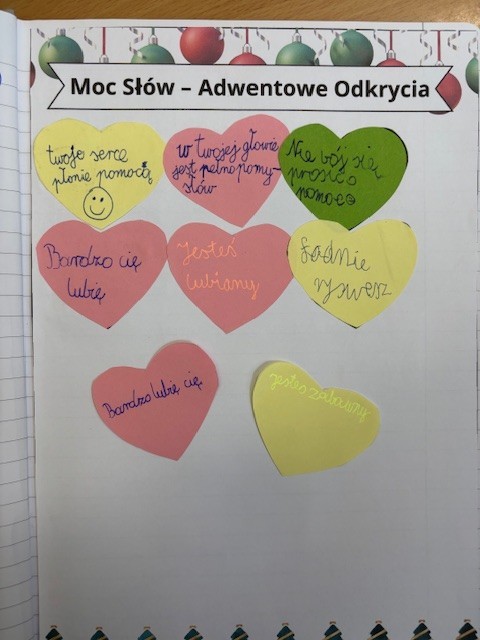 Moc Słów – Adwentowe Odkrycia
twoje serce
płonie pomocą
w twojej głowie
jest pełno pomy-
słów
Nie bój się
prosić o
pomoc
Bardzo cię
lubię
Jesteś
lubiany
Ładnie
rysujesz
Bardzo lubię cię
jesteś zabawny